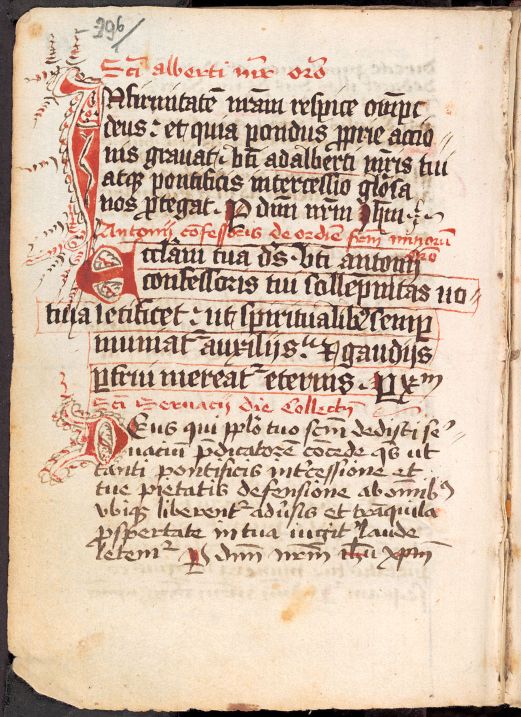 296
Sci alberti mr̄s oro
Infirmitatē nr̄am respice om̄ps
deus : et quia pondus ꝓprie actio
nis grauat, bt̄i adalberti mr̄is tui
atqꝫ pontificis intercessio glōsa
nos ꝓtegat . P dūm nr̄m Ihm
Antonij cōfessoris de ordīe frm̄ minorū
oro
Ecclām tua ds̄ bt̄i antonij
confessoris tui sollēpnitas uo
tiua letificet : ut spiritualibꝰ semꝑ
muniatᷣ auxilijs : et gaudijs
ꝑfrui mereatᷣ eternis . P xm̄
Sci Seruacij die Collectā
Deus qui pplo tuo scm̄ dedisti se
uacium p̄dicatorē cōcede qs̄ ut
tanti pontificis int̄cessione et
tue pietatis defensione ab omībꝰ
vbiqꝫ liberentᷣ adūsis et trāquilla
ꝓspertate in tua iugitᷣ laude
letentᷣ P dūm nr̄m ihū xp̄m